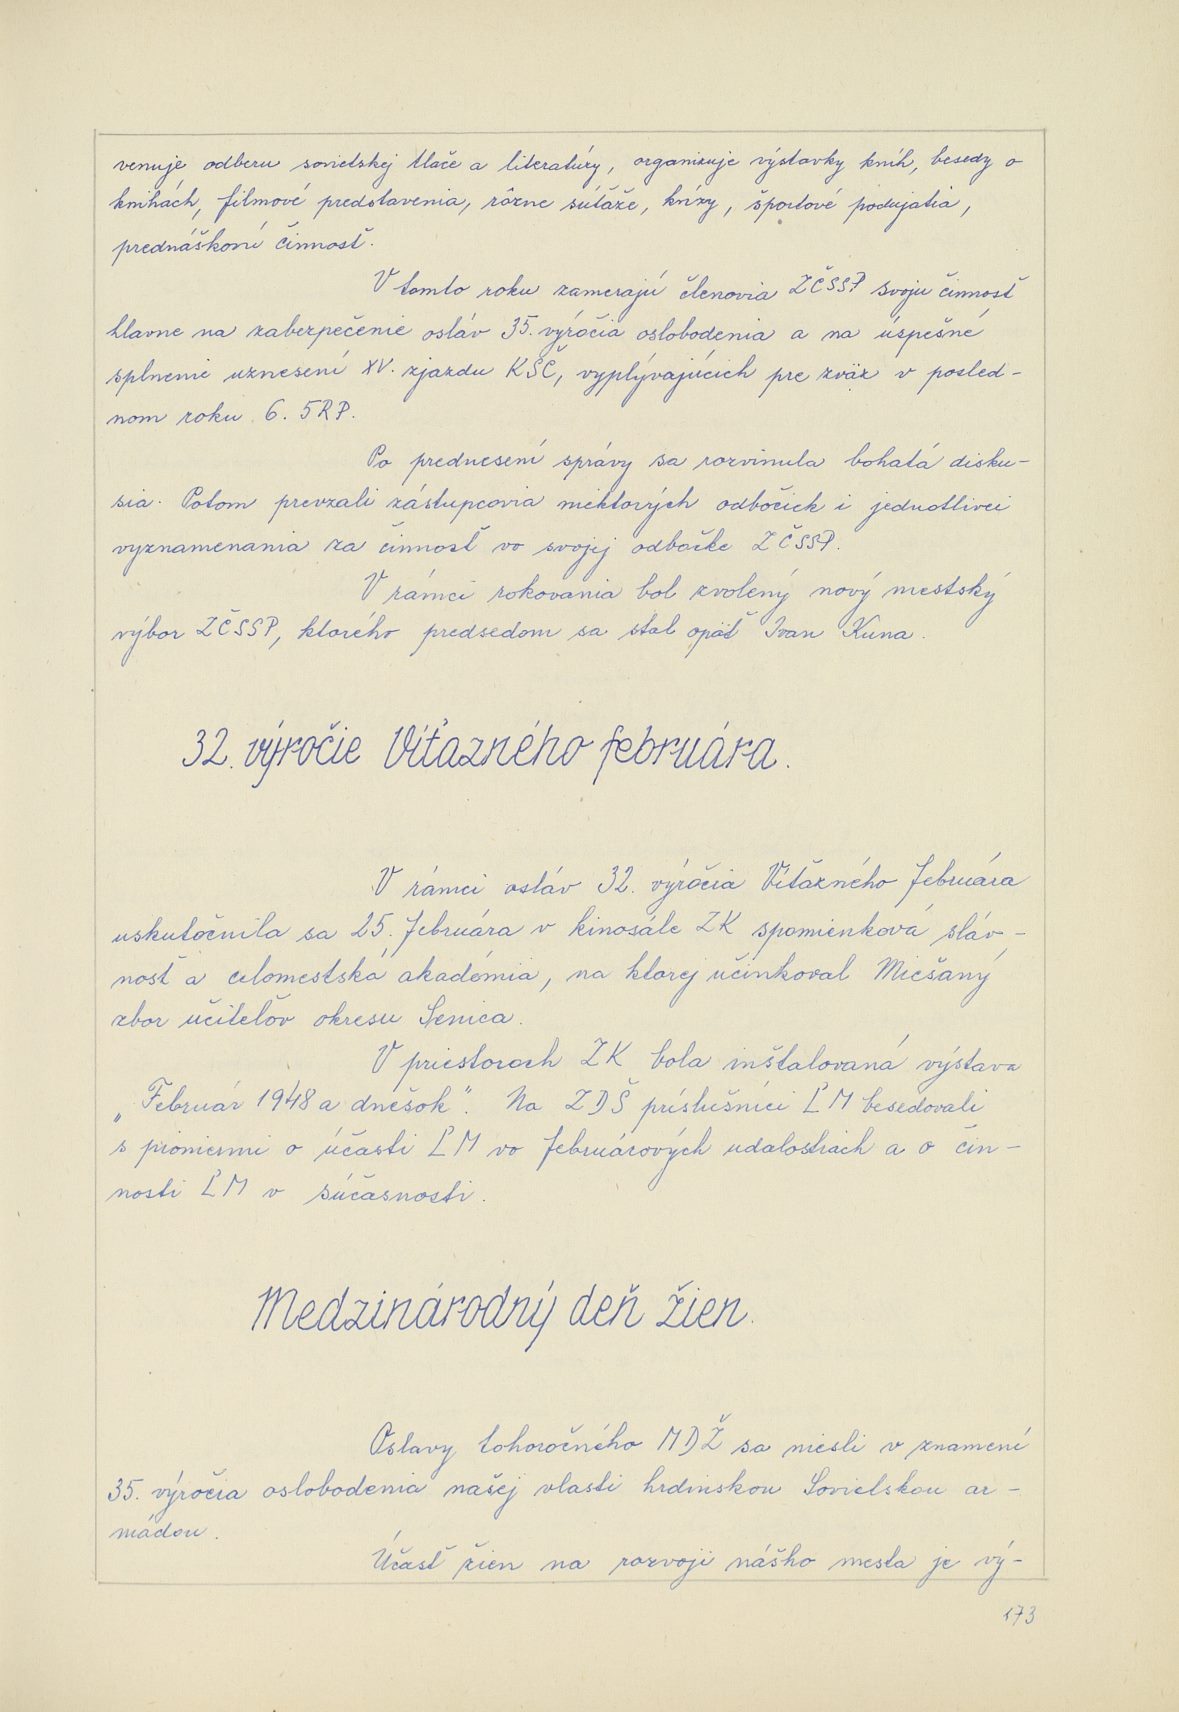 venuje odberu sovietskej tlače a literatúry, organizuje výstavky kníh, besedy o
knihách, filmové predstavenia, rôzne súťaže, kvízy, športové podujatia,
prednáškovú činnosť.
V tomto roku zamerajú členovia ZČSSP svoju činnosť
hlavne na zabezpečenie osláv 35. výročia oslobodenia a na úspešné
splnenie uznesení XV. zjazdu KSČ, vyplývajúcich pre zväz v posled-
nom roku 6. 5RP.
Po prednesení správy sa rozvinula bohatá disku-
sia. Potom prevzali zástupcovia niektorých odbočiek i jednotlivci
vyznamenania za činnosť vo svojej odbočke ZČSSP.
V rámci rokovania bol zvolený nový mestský
výbor ZČSSP, ktorého predsedom sa stal opäť Ivan Kuna.
32. výročie Víťazného februára.
V rámci osláv 32. výročia Víťazného februára
uskutočnila sa 25. februára v kinosále ZK spomienková sláv-
nosť a celomestská akadémia, na ktorej účinkoval Miešaný
zbor učiteľov okresu Senica.
V priestoroch ZK bola inštalovaná výstava
„Február 1948 a dnešok". Na ZDŠ príslušníci ĽM besedovali
s pioniermi o účasti ĽM vo februárových udalostiach a o čin-
nosti ĽM v súčasnosti.
Medzinárodný deň žien.
Oslavy tohoročného MDŽ sa niesli v znamení
35. výročia oslobodenia našej vlasti hrdinskou Sovietskou ar-
mádou.
Účasť žien na rozvoji nášho mesta je vý-
173